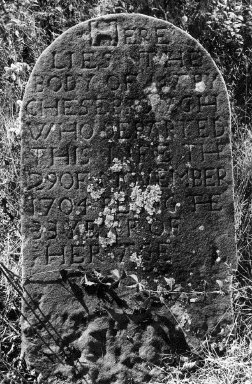 HERE
LIES THE
BODY OF
CHESEBROUGH
WHO DEPARTED
THIS LIFE TH
29 OF BER
1704 THE
33 YEAR OF
HER